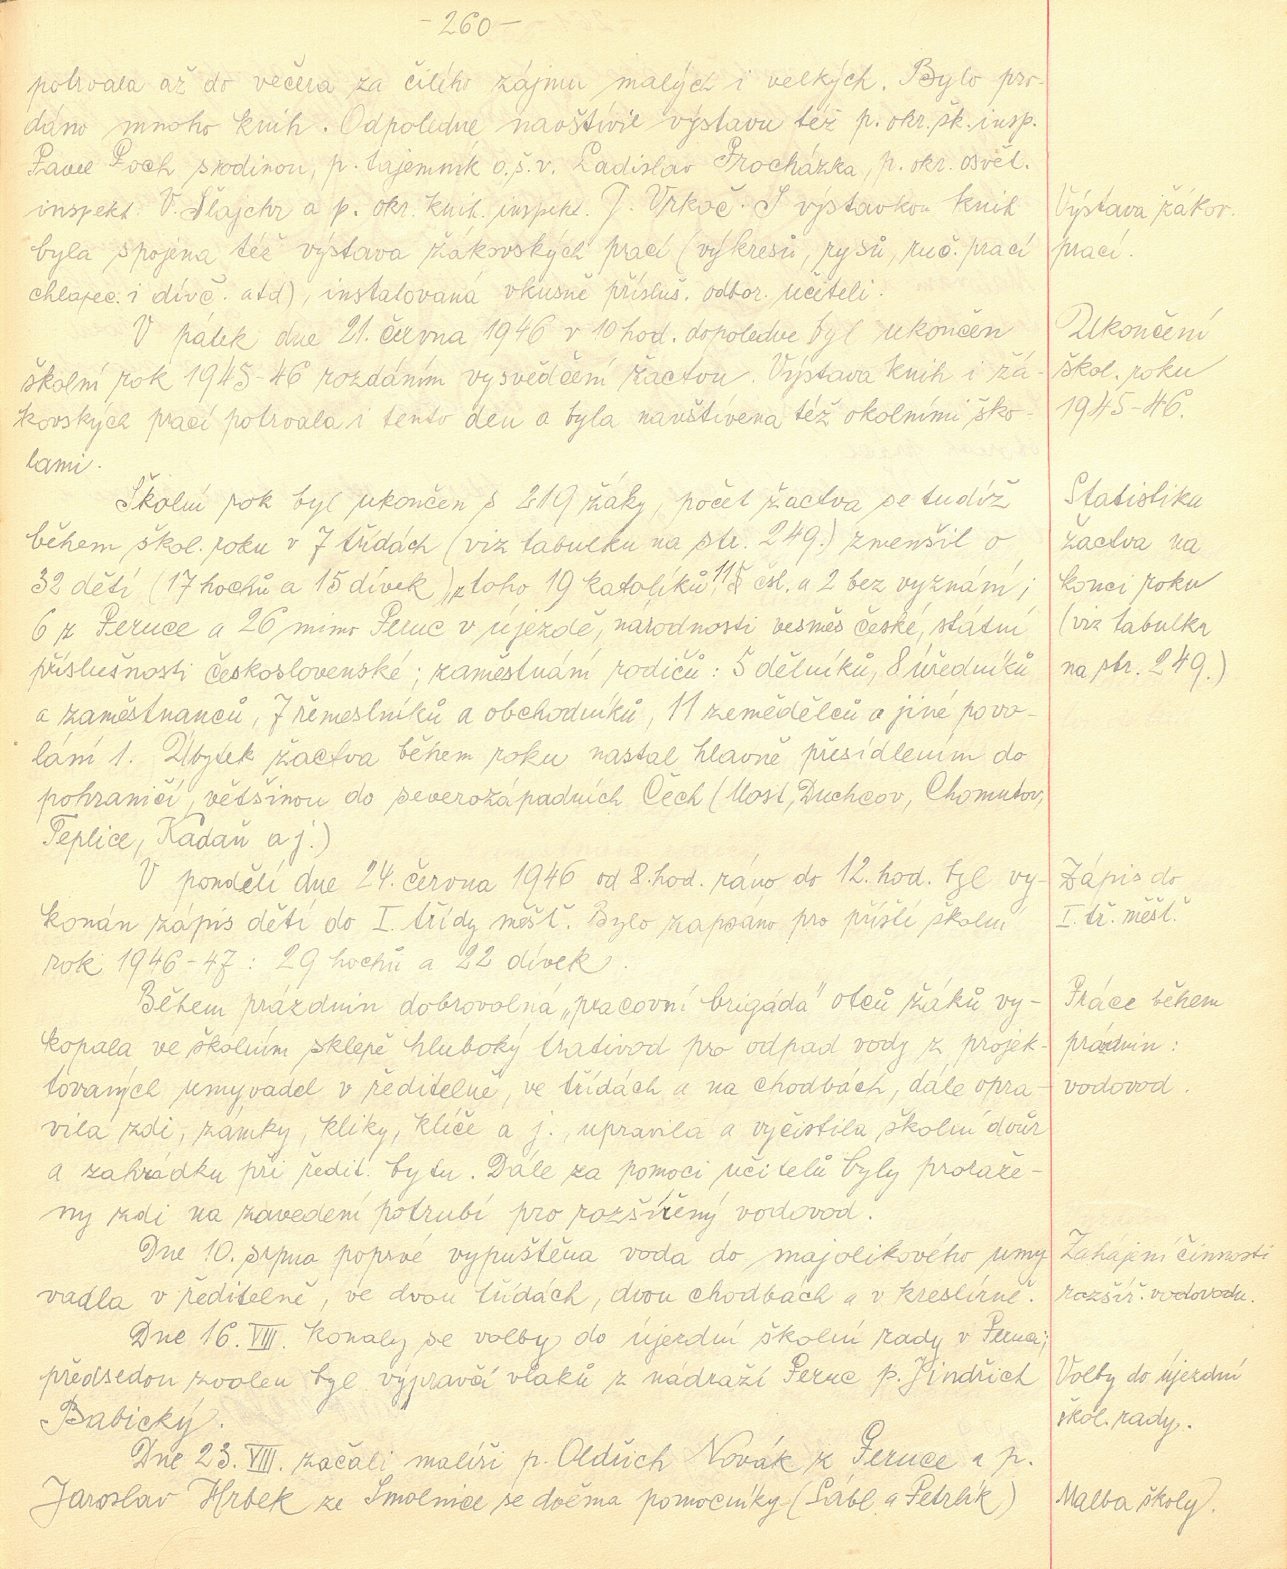 - 260 -
potrvala až do večera za čilého zájmu malých i velkých. Bylo pro-
dáno mnoho knih. Odpoledne navštívil výstavu též p. okr. šk. insp.
Pavel Poch s rodinou, p. tajemník o.š.v. Ladislav Procházka, p. okr. osvět.
inspekt. V. Šlajchr a p. okr. knih. inspekt. J. Vrkoč. S výstavkou knih
Výstava žákov.
byla spojena též výstava žákovských prací (výkresů, rysů, ruč. prací
prací.
chlapec. i dívč. atd), instalovaná vkusně přísluš. odbor. učiteli.
V pátek dne 21. června 1946 v 10 hod. dopoledne byl ukončen
Ukončení
školní rok 1945-46 rozdáním vysvědčení žactvu. Výstava knih i žá-
škol. roku
kovských prací potrvala i tento den a byla navštívena též okolními ško-
1945-46.
lami.
Školní rok byl ukončen s 219 žáky, počet žactva se tudíž
Statistika
během škol. roku v 7 třídách (viz tabulku na str. 249.) zmenšil o
žactva na
32 dětí (17 hochů a 15 dívek), z toho 19 katolíků, 11 čsl. a 2 bez vyznání;
konci roku
6 z Peruce a 26 mimo Peruc v újezdě, národnosti vesměs české, státní
(viz tabulka
příslušnosti československé; zaměstnání rodičů: 5 dělníků, 8 úředníků
na str. 249.)
a zaměstnanců, 7 řemeslníků a obchodníků, 11 zemědělců a jiné povo-
lání 1. Úbytek žactva během roku nastal hlavně přesídlením do
pohraničí, většinou do severozápadních Čech (Most, Duchcov, Chomutov,
Teplice, Kadaň a j.)
V pondělí dne 24. června 1946 od 8. hod. ráno do 12. hod. byl vy-
Zápis do
konán zápis dětí do I. třídy měšť. Bylo zapsáno pro příští školní
I. tř. měšť.
rok 1946-47: 29 hochů a 22 dívek.
Během prázdnin dobrovolná „pracovní brigáda" otců žáků vy-
Práce během
kopala ve školním sklepě hluboký trativod pro odpad vody z projek-
prázdnin:
tovaných umyvadel v ředitelně, ve třídách a na chodbách, dále opra-
vodovod.
vila zdi, zámky, kliky, klíče a j., upravila a vyčistila školní dvůr
a zahrádku při ředit. bytu. Dále za pomoci učitelů byly proraže-
ny zdi na zavedení potrubí pro rozšířený vodovod.
Dne 10. srpna poprvé vypuštěna voda do majolikového umy
Zahájení činnosti
vadla v ředitelně, ve dvou třídách, dvou chodbách a v kreslírně.
rozšíř. vodovodu.
Dne 16. VIII. konaly se volby do újezdní školní rady v Peruci;
předsedou zvolen byl výpravčí vlaků z nádraží Peruc p. Jindřich
Volby do újezdní
Babický.
škol. rady.
Dne 23. VIII. začali malíři p. Oldřich Novák z Peruce a p.
Jaroslav Hrbek ze Smolnice se dvěma pomocníky (Lábl a Petrlík)
Malba školy.